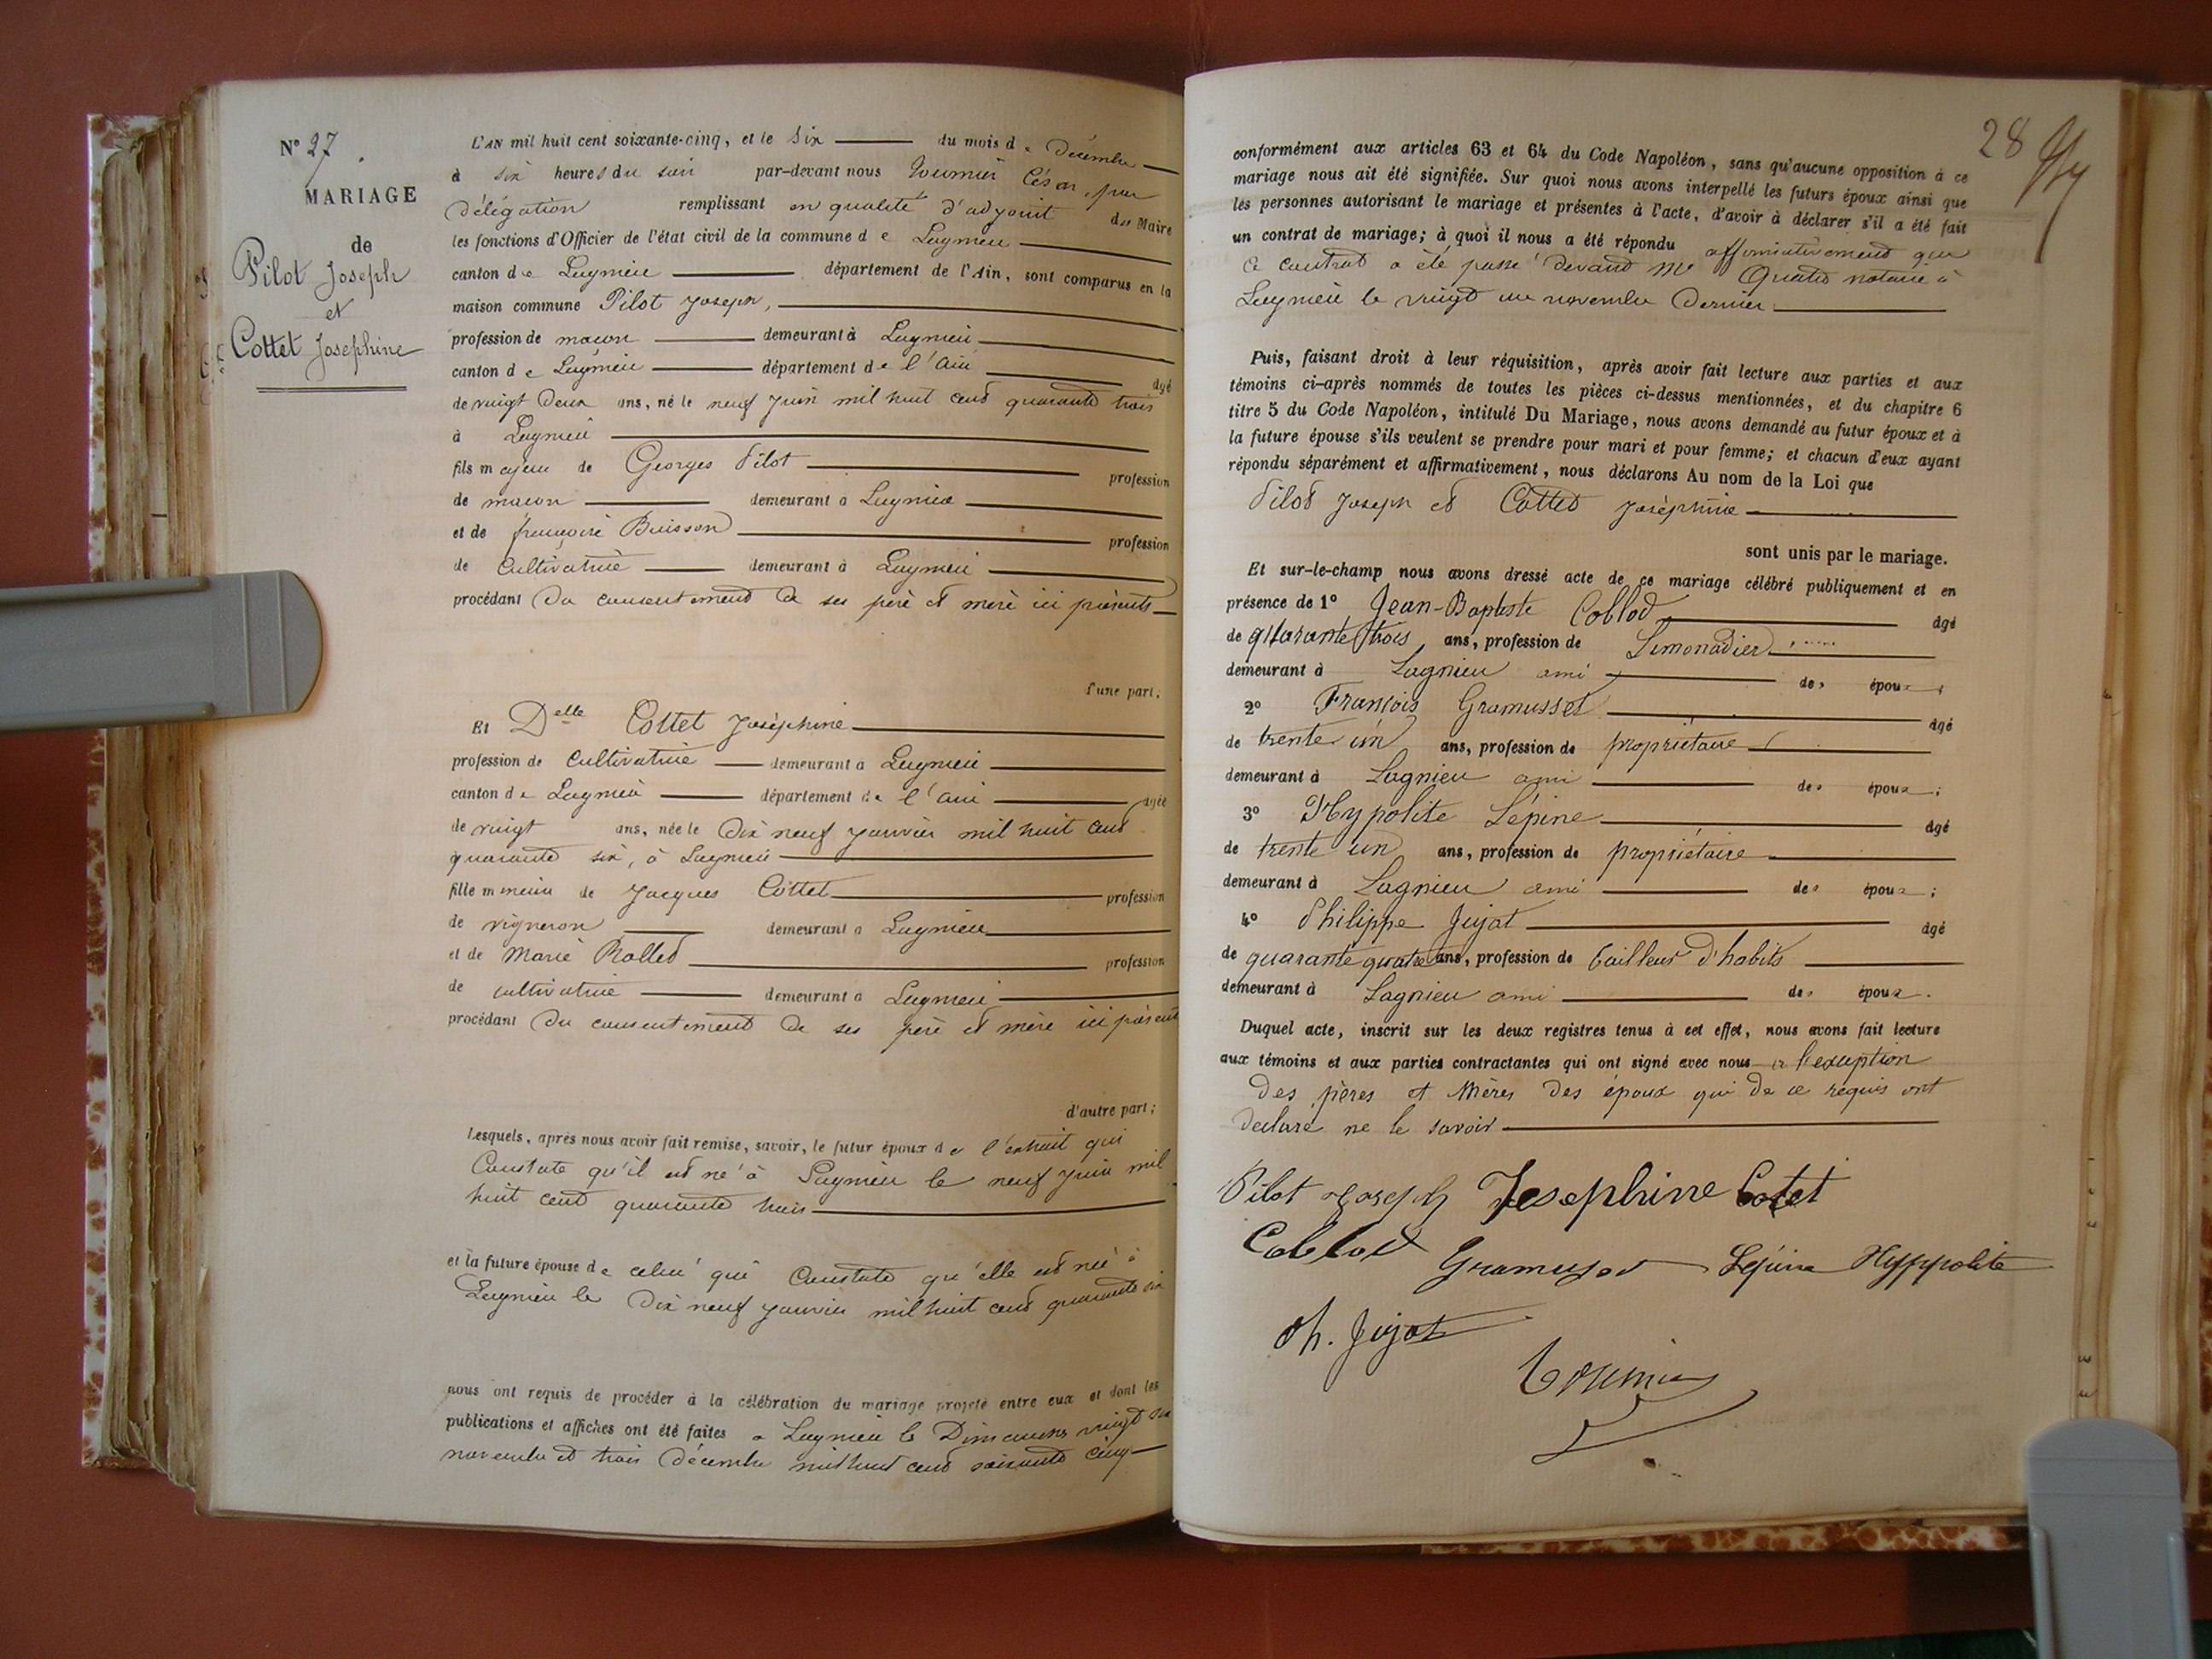 N° 27
MARIAGE
de
Pilot Joseph
et
Cottet Josephine
L'AN mil huit cent soixante-cinq, et le Six du mois de Décembre
à six heures du soir par-devant nous César, par
délégation remplissant en qualité d'adjoint du Maire
les fonctions d'Officier de l'état civil de la commune de Lagnieu
canton de Lagnieu département de l'Ain, sont comparus en la
maison commune Pilot Joseph,
profession de macon demeurant à Lagnieu
canton de Lagnieu département de l'Ain âgé
de vingt deux ans, né le neuf Juin mil huit cent quarante trois
à Lagnieu
fils majeur de Georges Pilot profession
de macon demeurant à Lagnieu
et de françoise Buisson profession
de Cultivatrice demeurant à Lagnieu
procédant du consentement de ses père et mère ici présents
d'une part;
Et Delle Cottet Joséphine
profession de Cultivatrice demeurant à Lagnieu
canton de Lagnieu département de l'Ain âgée
de vingt ans, née le dix neuf janvier mil huit cent
quarante six, à Lagnieu
fille mineure de Jacques Cottet profession
de vigneron demeurant à Lagnieu
et de Marie Rollet profession
de cultivatrice demeurant à Lagnieu
procédant du consentement de ses père et mère ici présents
d'autre part;
Lesquels, après nous avoir fait remise, savoir, le futur époux de l'extrait qui
Constate qu'il est né à Lagnieu le neuf Juin mil
huit cent quarante trois
et la future épouse de celui qui Constate qu'elle est née à
Lagnieu le dix neuf janvier mil huit cent quarante six
nous ont requis de procéder à la célébration du mariage projeté entre eux et dont les
publications et affiches ont été faites à Lagnieu le Dimanches vingt six
novembre et trois décembre mil huit cent soixante cinq
28
conformément aux articles 63 et 64 du Code Napoléon, sans qu'aucune opposition à ce
mariage nous ait été signifiée. Sur quoi nous avons interpellé les futurs époux ainsi que
les personnes autorisant le mariage et présentes à l'acte, d'avoir à déclarer s'il a été fait
un contrat de mariage; à quoi il nous a été répondu affirmativement que
ce contrat a été passé devant Me notaire à
Lagnieu le vingt un novembre dernier
Puis, faisant droit à leur réquisition, après avoir fait lecture aux parties et aux
témoins ci-après nommés de toutes les pièces ci-dessus mentionnées, et du chapitre 6
titre 5 du Code Napoléon, intitulé Du Mariage, nous avons demandé au futur époux et à
la future épouse s'ils veulent se prendre pour mari et pour femme; et chacun d'eux ayant
répondu séparément et affirmativement, nous déclarons Au nom de la Loi que
Pilot Joseph et Cottet Joséphine
sont unis par le mariage.
Et sur-le-champ nous avons dressé acte de ce mariage célébré publiquement et en
présence de 1° Jean-Baptiste Coblod âgé
de quarante trois ans, profession de Limonadier
demeurant à Lagnieu ami des époux;
2° François Gramusset âgé
de trente un ans, profession de propriétaire
demeurant à Lagnieu ami des époux;
3° Hypolite Lépine âgé
de trente un ans, profession de propriétaire
demeurant à Lagnieu ami des époux;
4° Philippe Jujat âgé
de quarante quatre ans, profession de tailleur d'habits
demeurant à Lagnieu ami des époux.
Duquel acte, inscrit sur les deux registres tenus à cet effet, nous avons fait lecture
aux témoins et aux parties contractantes qui ont signé avec nous à l'exception
des pères et Mères des époux qui de ce requis ont
déclaré ne le savoir
Pilot Joseph Josephine Cotet
Coblod Gramusset Lépine Hyppolite
Ph. Jujat